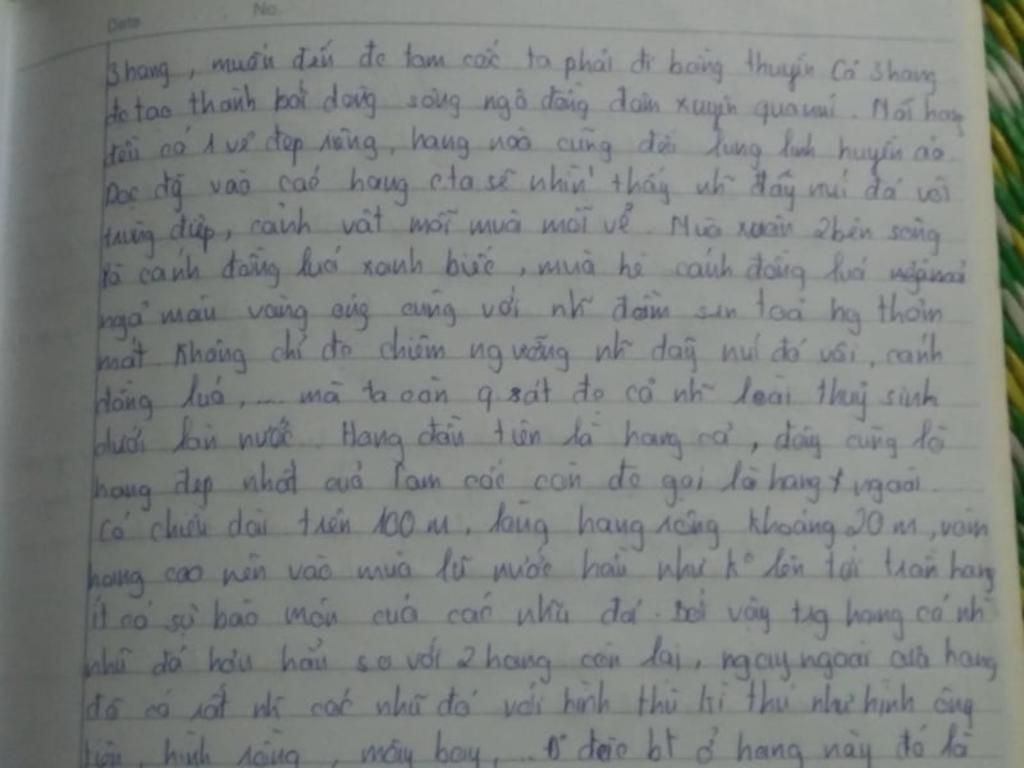 Date No.
3 hang, muốn đến đc tam cốc ta phải đi bằng thuyền Cả 3 hang
đc tạo thành bởi dòng sông ngô đồng đâm xuyên qua núi. Mỗi hang
đều có 1 vẻ đẹp riêng, hang nào cũng đều lung linh huyền ảo.
Dọc đg vào các hang cta sẽ nhìn thấy nh~ dãy núi đá vôi
trùng điệp, cảnh vật mỗi mùa mỗi vẻ. Mùa xuân 2 bên sông
là cánh đồng lúa xanh biếc, mùa hè cánh đồng lúa
ngả màu vàng óng cùng với nh~ đầm sen toả hg thơm
mát Không chỉ đc chiêm ngưỡng nh~ dãy núi đá vôi, cánh
đồng lúa, .... mà ta còn q.sát đc cả nh~ loài thuỷ sinh
dưới làn nước. Hang đầu tiên là hang cả, đây cũng là
hang đẹp nhất của Tam cốc còn đc gọi là hang ngoài.
Có chiều dài trên 100 m, lòng hang rộng khoảng 20 m, vòm
hang cao nên vào mùa lũ nước hầu như k° lên tới trần hang
ít có sự bào mòn của các nhũ đá. Bởi vậy trg hang cả nh~
nhũ đá hơn hẳn so với 2 hang còn lại, ngay ngoài cửa hang
đã có rất nh` các nhũ đá với hình thù kì thú như hình ông
tiên, hình rồng, mây bay, ... đặc bt ở hang này đó là